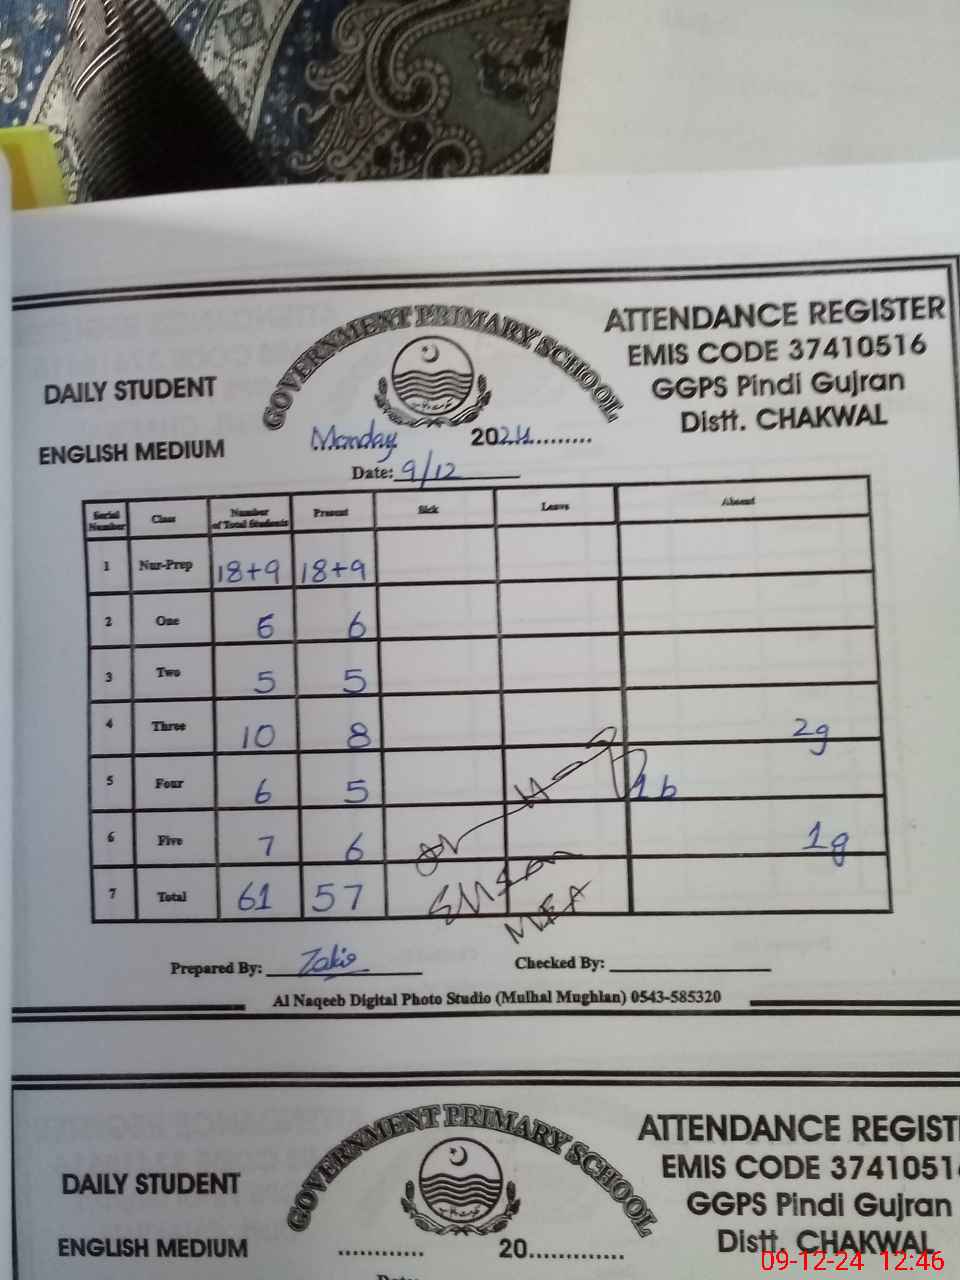 GOVERNMENT PRIMARY SCHOOL
ATTENDANCE REGISTER
EMIS CODE 37410516
DAILY STUDENT
GGPS Pindi Gujran
Distt. CHAKWAL
ENGLISH MEDIUM
Monday 2024.........
Date: 9/12
Serial Number Class Number of Total Students Present Sick Leave Absent
1 Nur-Prep 18+9 18+9
2 One 6 6
3 Two 5 5
4 Three 10 8 2g
5 Four 6 5 1b
6 Five 7 6 1g
7 Total 61 57
Prepared By: Checked By:
Al Naqeeb Digital Photo Studio (Mulhal Mughlan) 0543-585320
GOVERNMENT PRIMARY SCHOOL
ATTENDANCE REGIST
EMIS CODE 3741051
DAILY STUDENT
GGPS Pindi Gujran
Distt. CHAKWAL
ENGLISH MEDIUM
............ 20.............
09-12-24 12:46